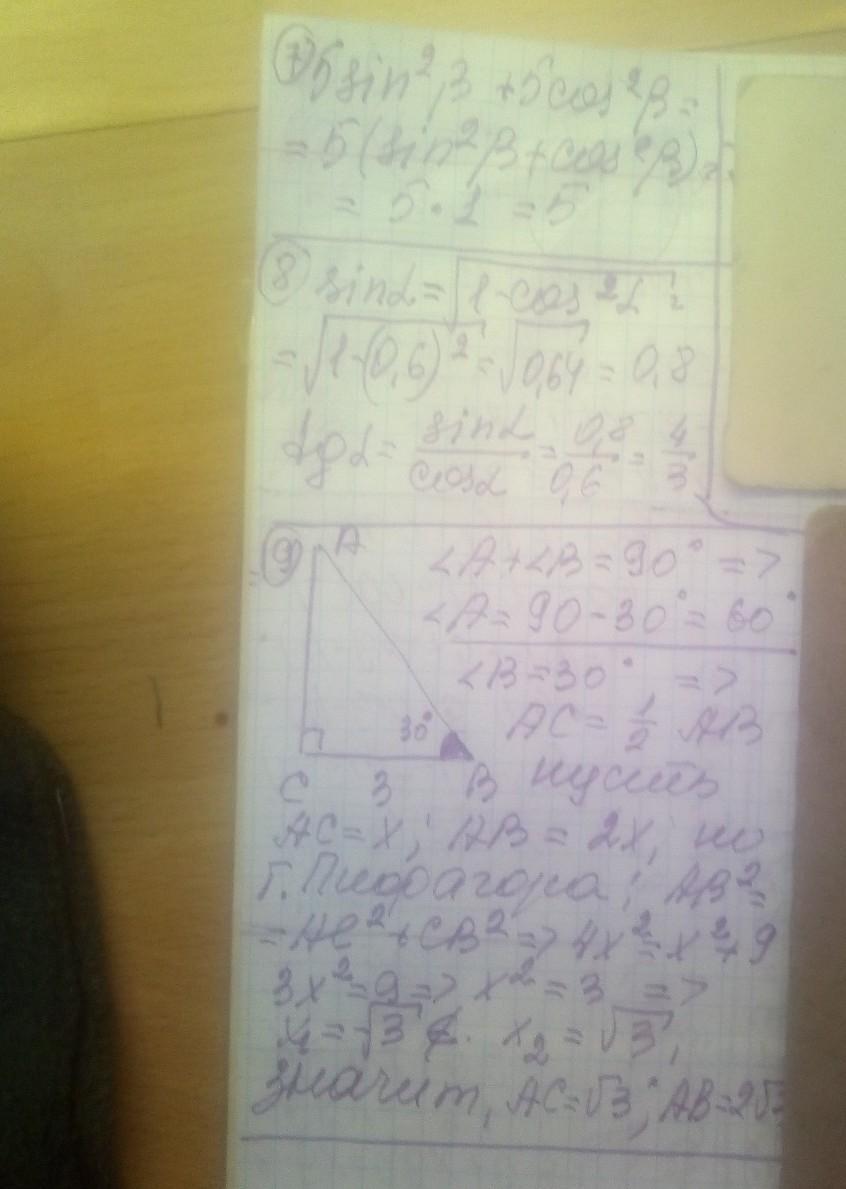 7) 5sin²β + 5cos²β =
= 5(sin²β + cos²β) =
= 5 · 1 = 5
8 sinα = √(1 - cos²α) =
= √(1 - (0,6)²) = √0,64 = 0,8
tgα = sinα/cosα = 0,8/0,6 = 4/3
9) A
∠A + ∠B = 90° =>
∠A = 90 - 30° = 60°
∠B = 30° =>
30°
AC = 1/2 AB
C 3 B пусть
AC = x; AB = 2x, по
т. Пифагора: AB² =
= AC² + CB² => 4x² = x² + 9
3x² = 9 => x² = 3 =>
x₂ = √3,
значит, AC = √3; AB = 2√3